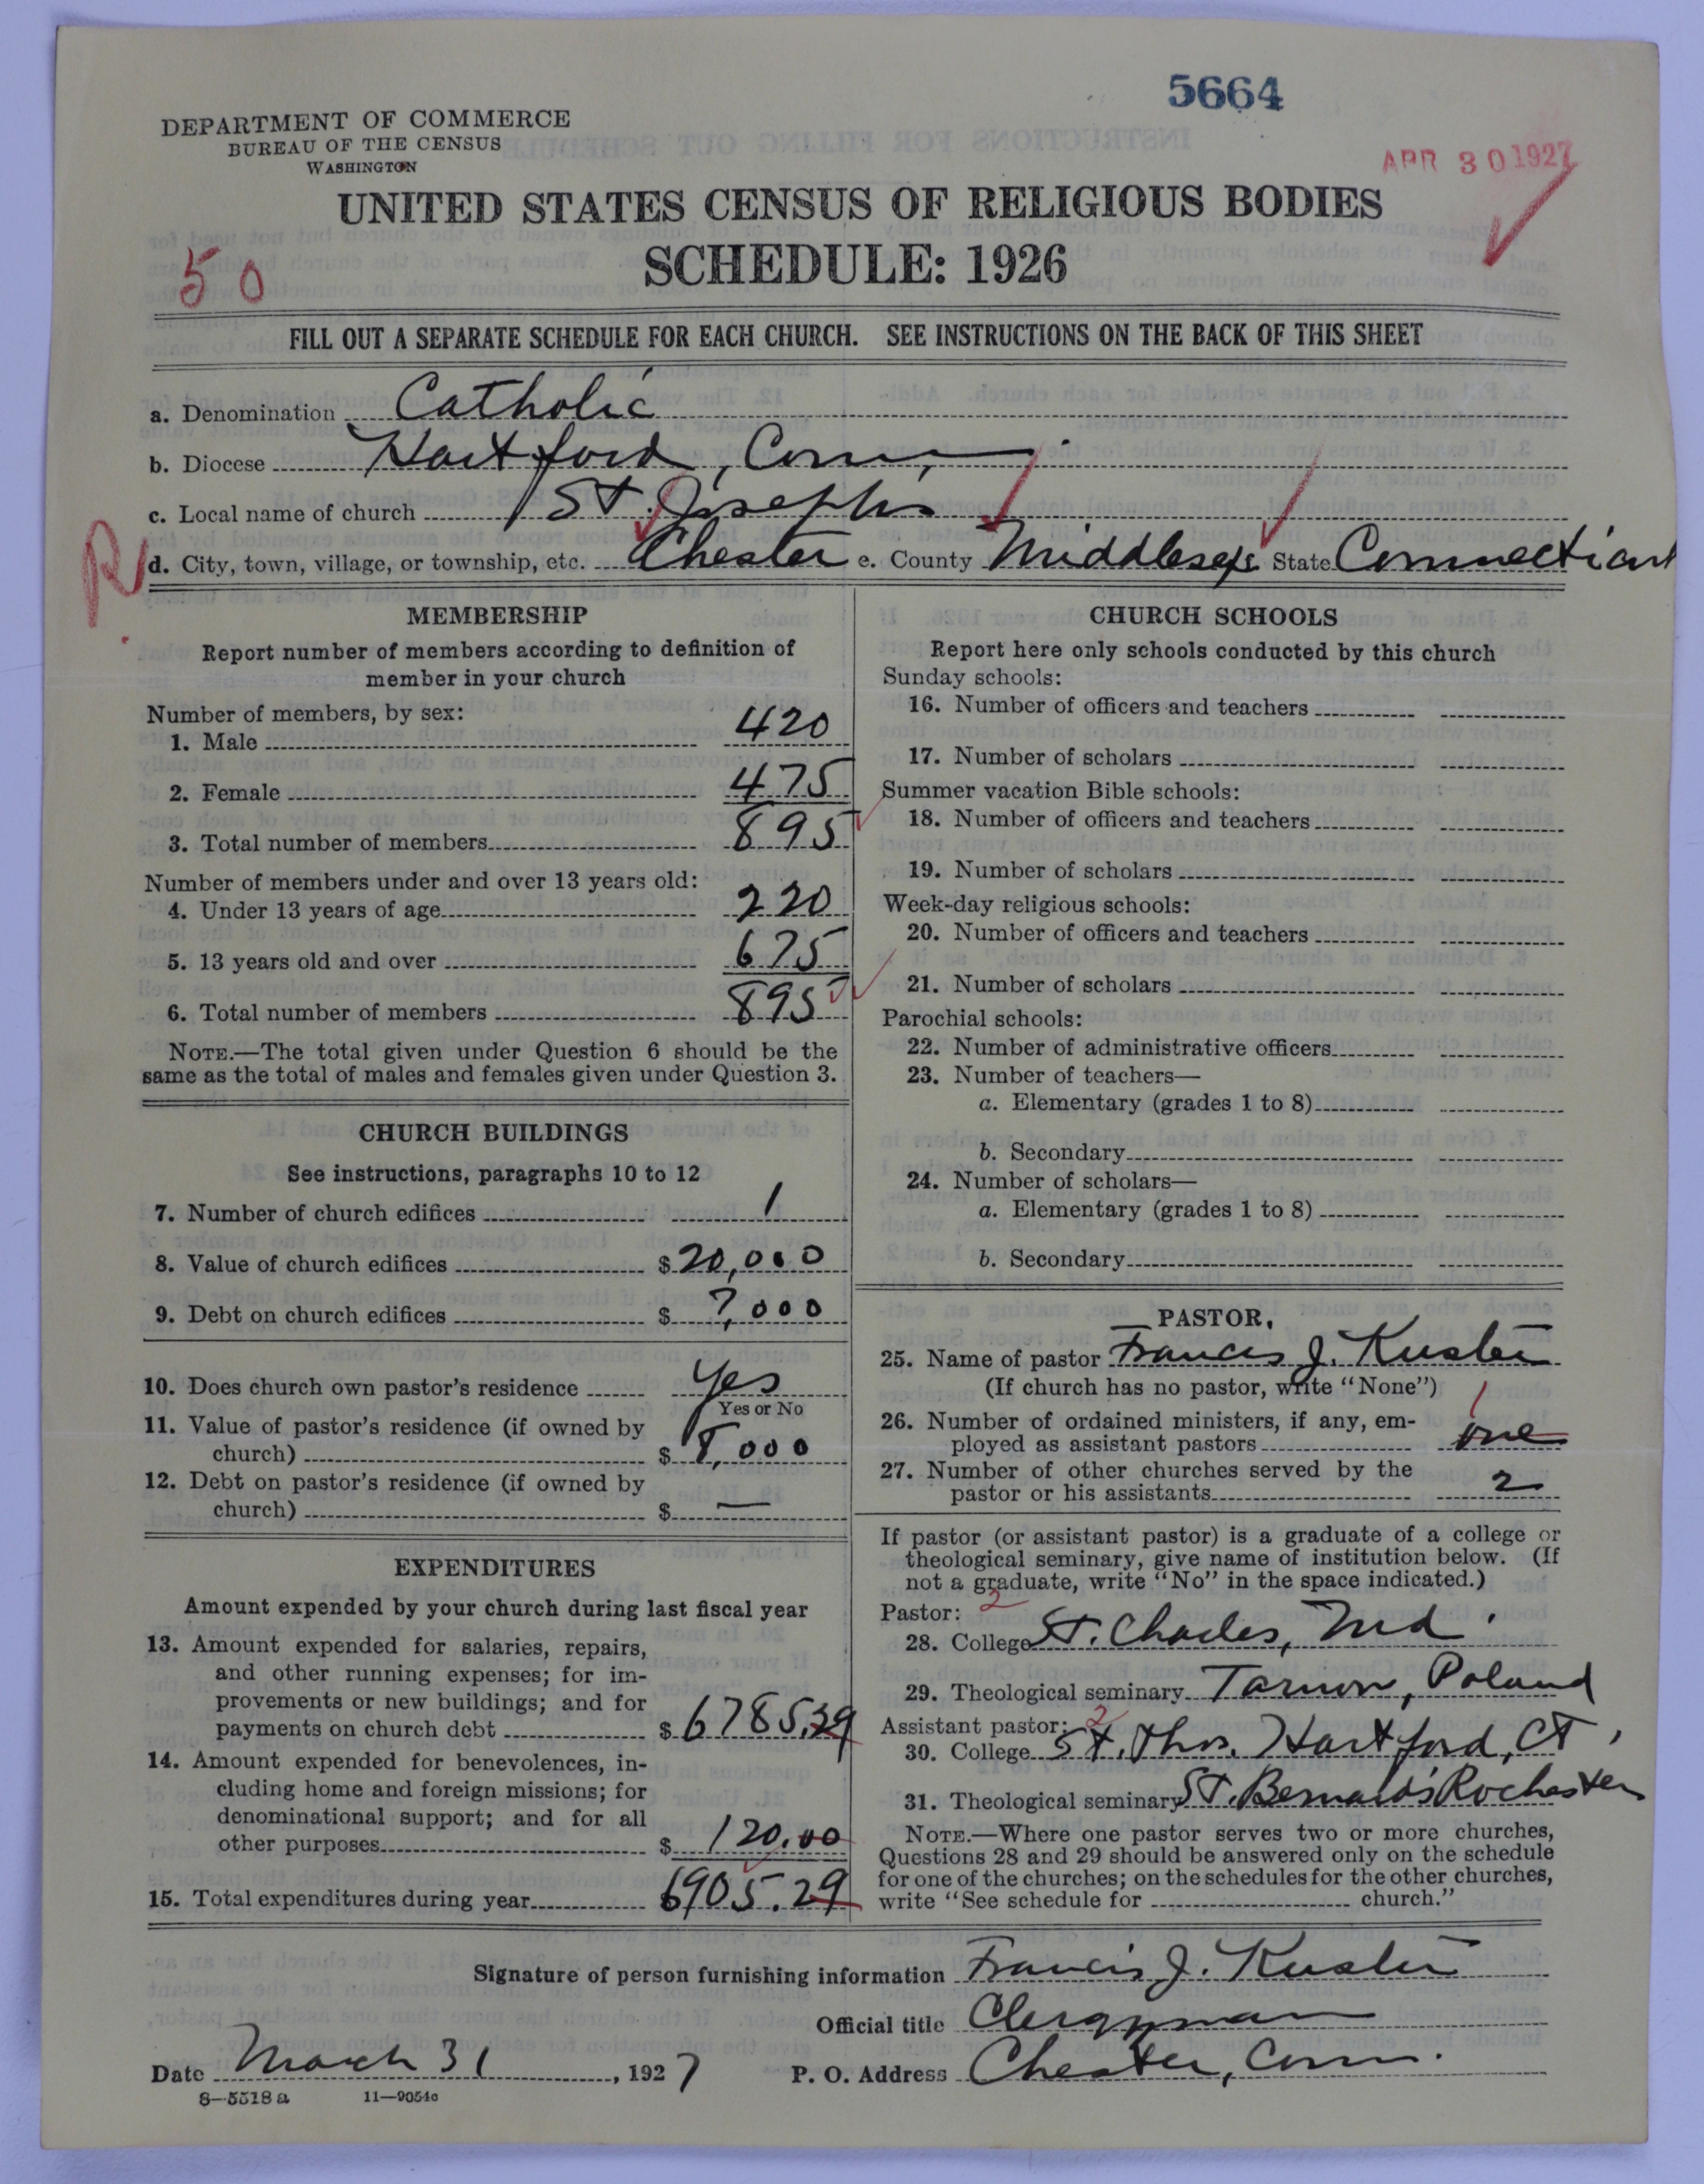 5664
DEPARTMENT OF COMMERCE
BUREAU OF THE CENSUS
WASHINGTON
APR 30 1927
UNITED STATES CENSUS OF RELIGIOUS BODIES
SCHEDULE: 1926
50
FILL OUT A SEPARATE SCHEDULE FOR EACH CHURCH. SEE INSTRUCTIONS ON THE BACK OF THIS SHEET
a. Denomination Catholic
b. Diocese Hartford, Conn.
c. Local name of church St. Joseph's
R d. City, town, village, or township, etc. Chester e. County Middlesex State Connecticut
MEMBERSHIP
Report number of members according to definition of
member in your church
Number of members, by sex:
1. Male 420
2. Female 475
3. Total number of members 895
Number of members under and over 13 years old:
4. Under 13 years of age 220
5. 13 years old and over 675
6. Total number of members 895
NOTE.—The total given under Question 6 should be the
same as the total of males and females given under Question 3.
CHURCH BUILDINGS
See instructions, paragraphs 10 to 12
7. Number of church edifices 1
8. Value of church edifices $ 20,000
9. Debt on church edifices $ 7,000
10. Does church own pastor's residence Yes
Yes or No
11. Value of pastor's residence (if owned by
church) $ 8,000
12. Debt on pastor's residence (if owned by
church) $ —
EXPENDITURES
Amount expended by your church during last fiscal year
13. Amount expended for salaries, repairs,
and other running expenses; for im-
provements or new buildings; and for
payments on church debt $ 6785.29
14. Amount expended for benevolences, in-
cluding home and foreign missions; for
denominational support; and for all
other purposes $ 120.00
15. Total expenditures during year 6905.29
CHURCH SCHOOLS
Report here only schools conducted by this church
Sunday schools:
16. Number of officers and teachers
17. Number of scholars
Summer vacation Bible schools:
18. Number of officers and teachers
19. Number of scholars
Week-day religious schools:
20. Number of officers and teachers
21. Number of scholars
Parochial schools:
22. Number of administrative officers
23. Number of teachers—
a. Elementary (grades 1 to 8)
b. Secondary
24. Number of scholars—
a. Elementary (grades 1 to 8)
b. Secondary
PASTOR
25. Name of pastor Francis J. Kuster
(If church has no pastor, write "None")
1
26. Number of ordained ministers, if any, em-
ployed as assistant pastors one
27. Number of other churches served by the
pastor or his assistants 2
If pastor (or assistant pastor) is a graduate of a college or
theological seminary, give name of institution below. (If
not a graduate, write "No" in the space indicated.)
Pastor: 2
28. College St. Charles, Md.
29. Theological seminary Tarnow, Poland
Assistant pastor: 2
30. College St. Thos. Hartford, Ct.
31. Theological seminary St. Bernard's Rochester
NOTE.—Where one pastor serves two or more churches,
Questions 28 and 29 should be answered only on the schedule
for one of the churches; on the schedules for the other churches,
write "See schedule for church."
Signature of person furnishing information Francis J. Kuster
Official title Clergyman
Date March 31, 1927 P. O. Address Chester, Conn.
8—5518 a 11—9054c